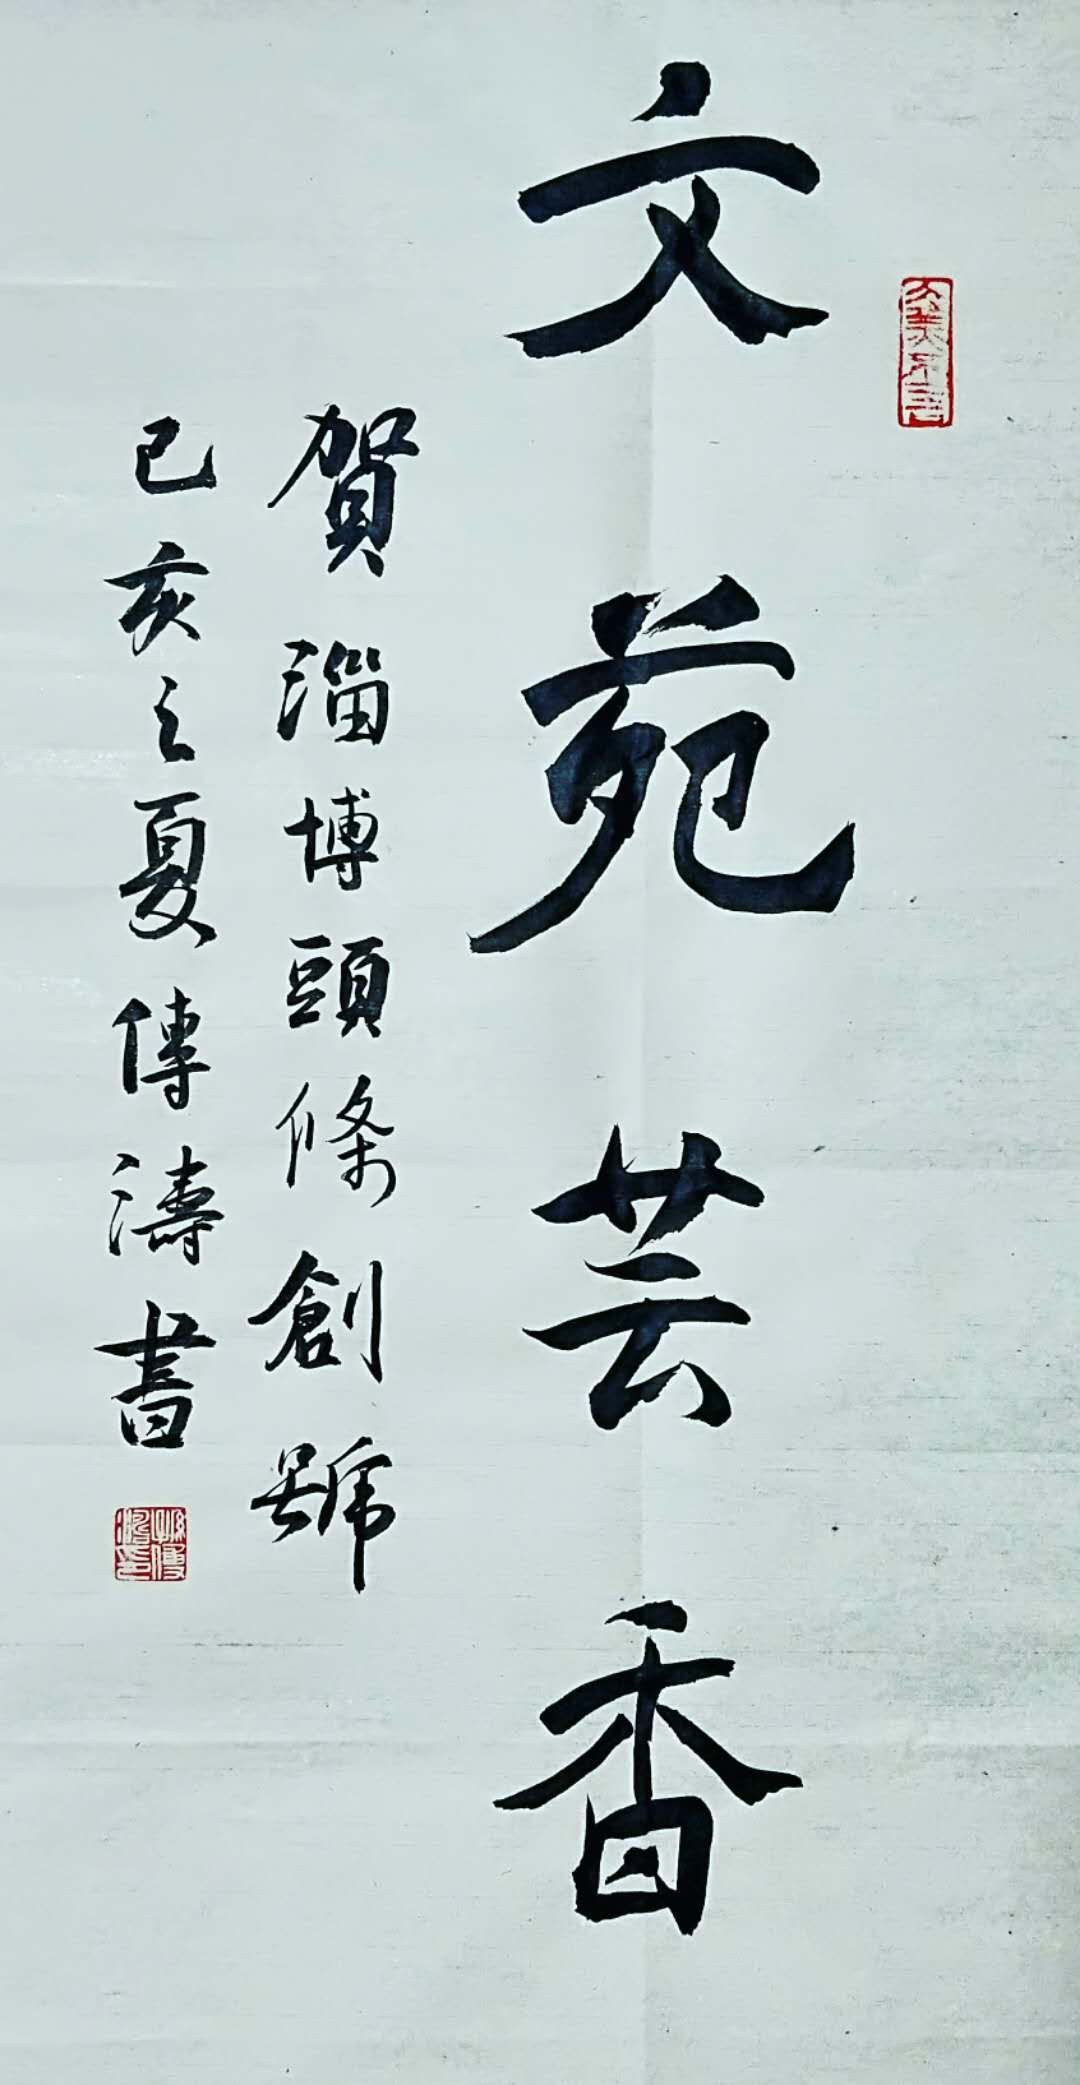 文苑芸香
賀淄博頭條創號
己亥之夏傳濤書